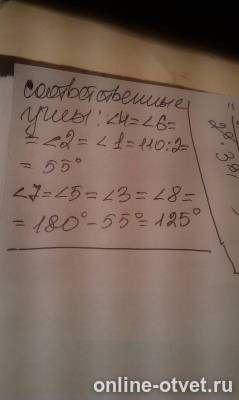 соответственные
углы: ∠4=∠6=
=∠2=∠1=110:2=
=55°
∠7=∠5=∠3=∠8=
=180°-55°=125°
online-otvet.ru